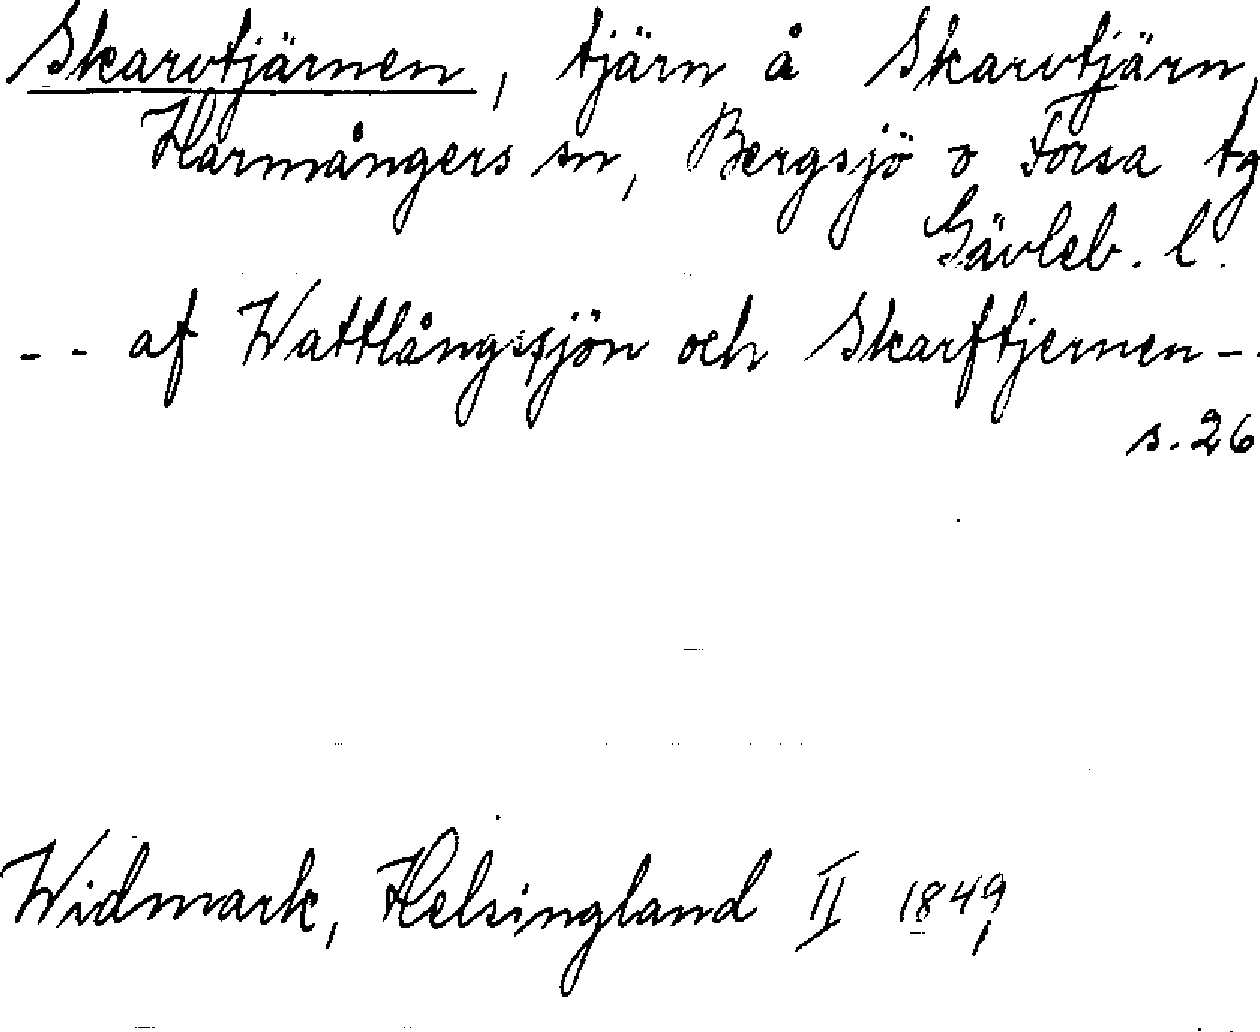 Skarvtjärnen, tjärn å Skarvtjärn,
Harmångers sn, Bergsjö o Forsa tg
Gävleb. l.
-- af Wattlångssjön och Skarftjernen --
s. 26
Widmark, Helsingland II 1849